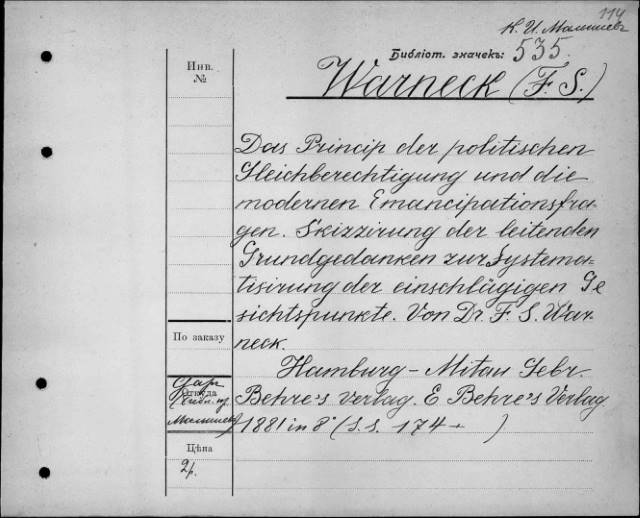 114
К. И. Малышевъ
Библіот. значекъ: 535.
Инв.
№
Warneck (F. S.)
Das Princip der politischen
Gleichberechtigung und die
modernen Emancipationsfra-
gen. Skizzirung der leitenden
Grundgedanken zur Systema-
tisirung der einschlägigen Ge
sichtspunkte. Von Dr. F. S. War-
neck.
По заказу
Hamburg-Mitau Gebr.
Откуда
Behre's Verlag. E. Behre's Verlag
Малышев
1881 in 8° (S.S. 174 + )
Цѣна
2р.